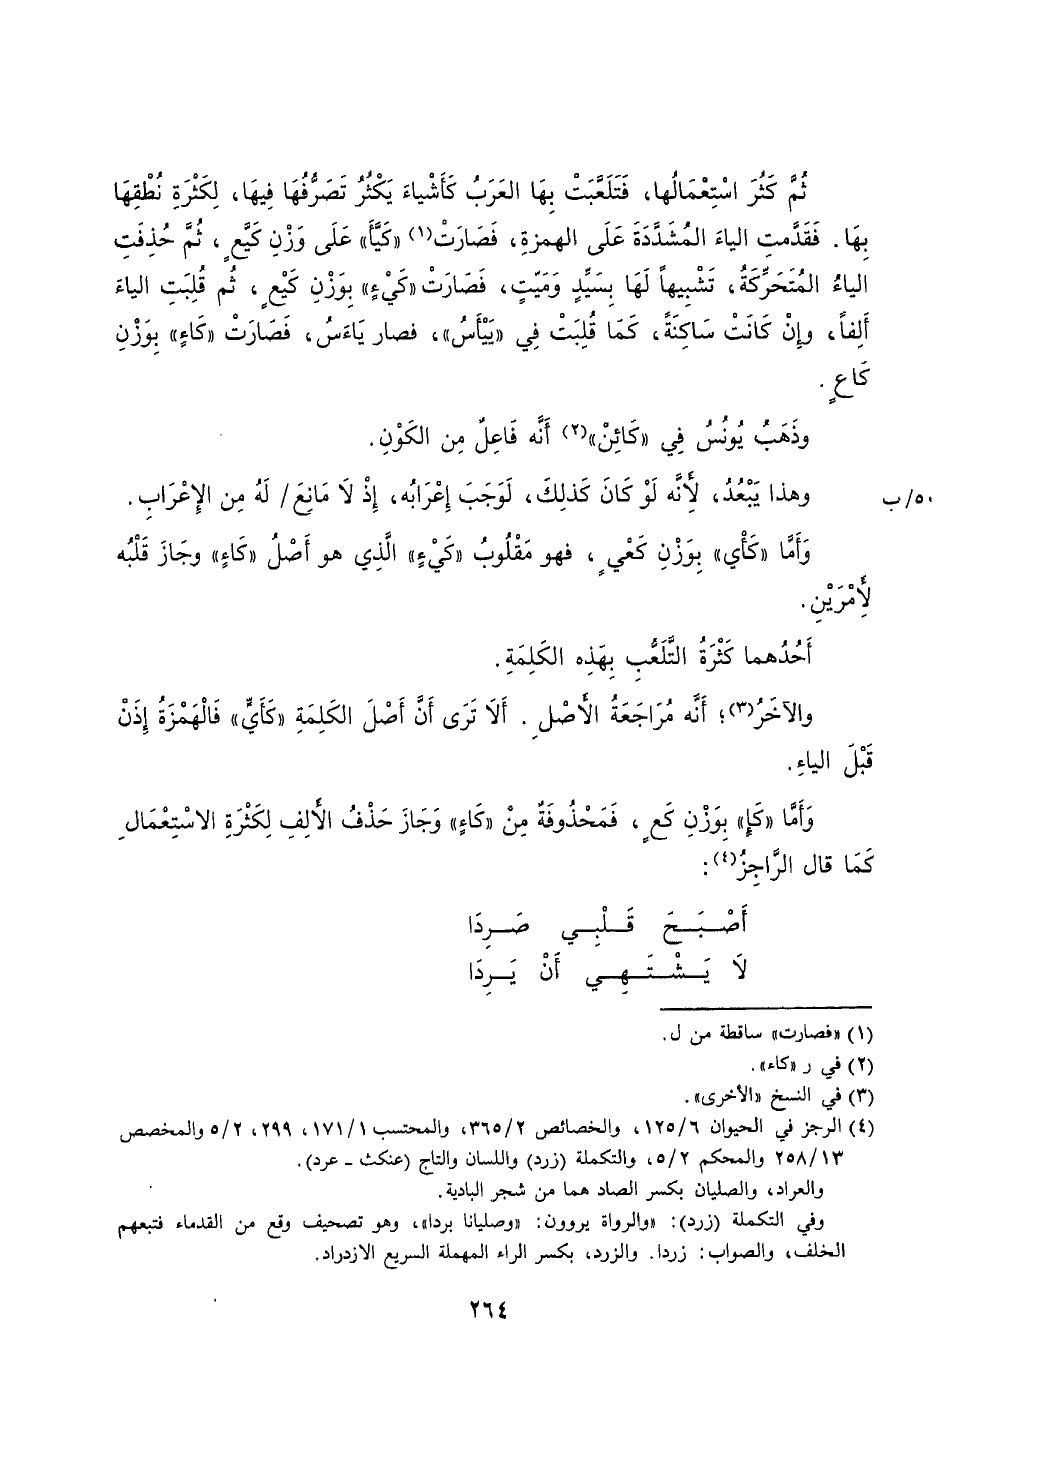 ثُمَّ كَثُرَ اسْتِعْمَالُها، فَتَلَعَّبَتْ بِهَا العَرَبُ كَأَشْياءَ يَكْثُرُ تَصَرُّفُهَا فِيهَا، لِكَثْرَةِ نُطْقِهَا
بِهَا. فَقَدَّمتِ الياءَ المُشَدَّدَةَ عَلَى الهمزةِ، فَصَارَتْ(١) «كَيَّأً» عَلَى وَزْنِ كَيَّعٍ، ثُمَّ حُذِفَتِ
الياءُ المُتَحَرِّكَةُ، تَشْبِيهاً لَهَا بِسَيِّدٍ وَمَيِّتٍ، فَصَارَتْ «كَيْءٍ» بِوَزْنِ كَيْعٍ، ثُم قُلِبَتِ الياءَ
أَلِفاً، وإِنْ كَانَتْ سَاكِنَةً، كَمَا قُلِبَتْ فِي «يَيْأَسُ»، فصار يَاءَسُ، فَصَارَتْ «كَاءٍ» بِوَزْنِ
كَاعٍ.
وذَهَبُ يُونُسُ فِي «كَائِنْ»(٢) أَنَّه فَاعِلٌ مِن الكَوْنِ.
٥٠/ب وهذا يَبْعُدُ، لِأَنَّه لَوْ كَانَ كَذلِكَ، لَوَجَبَ إِعْرَابُه، إِذْ لَا مَانِعَ/ لَهُ مِن الإِعْرَابِ.
وَأَمَّا «كَأْي» بِوَزْنِ كَعْيٍ، فهو مَقْلُوبُ «كَيْءٍ» الَّذِي هو أَصْلُ «كَاءٍ» وجَازَ قَلْبُه
لِأَمْرَيْنِ.
أَحُدُهما كَثْرَةُ التَّلَعُّبِ بِهَذِه الكَلِمَةِ.
والآخَرُ(٣)؛ أَنَّه مُرَاجَعَةُ الأَصْلِ. أَلَا تَرَى أَنَّ أَصْلَ الكَلِمَةِ «كَأَيٍّ» فَالْهَمْزَةُ إِذَنْ
قَبْلَ الياءِ.
وَأَمَّا «كَإٍ» بِوَزْنِ كَعٍ، فَمَحْذُوفَةٌ مِنْ «كَاءٍ» وَجَازَ حَذْفُ الأَلِفِ لِكَثْرَةِ الاسْتِعْمَالِ
كَمَا قال الرَّاجِزُ(٤):
أَصْبَحَ قَلْبِي صَرِدَا
لَا يَشْتَهِي أَنْ يَرِدَا
(١) «فصارت» ساقطة من ل.
(٢) في ر «كاء».
(٣) في النسخ «الأخرى».
(٤) الرجز في الحيوان ١٢٥/٦، والخصائص ٣٦٥/٢، والمحتسب ١٧١/١، ٢٩٩، ٥/٢ والمخصص
٢٥٨/١٣ والمحكم ٥/٢، والتكملة (زرد) واللسان والتاج (عنكث ـ عرد).
والعراد، والصليان بكسر الصاد هما من شجر البادية.
وفي التكملة (زرد): «والرواة يروون: «وصليانا بردا»، وهو تصحيف وقع من القدماء فتبعهم
الخلف، والصواب: زردا. والزرد، بكسر الراء المهملة السريع الازدراد.
٢٦٤